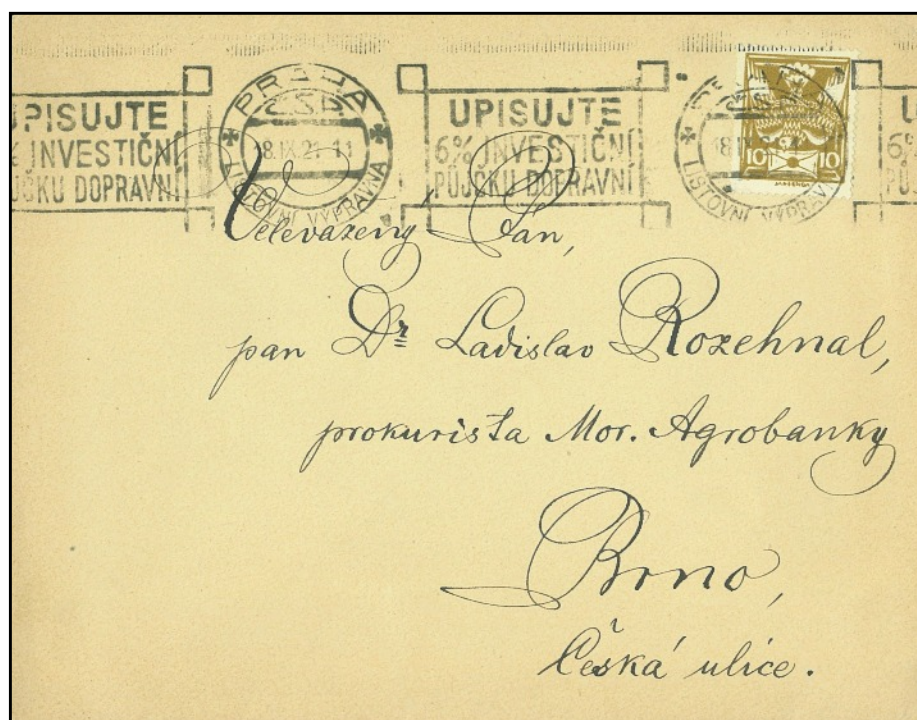 UPISUJTE
6% INVESTIČNÍ
PŮJČKU DOPRAVNÍ
PRAHA
ČSP
18.IX.21-11
LISTOVNÍ VÝPRAVNA
UPISUJTE
6% INVESTIČNÍ
PŮJČKU DOPRAVNÍ
LISTOVNÍ VÝPRAVNA
10 10
Velevážený Pán,
pan Dr Ladislav Rozehnal,
prokurista Mor. Agrobanky
Brno,
Česká ulice.